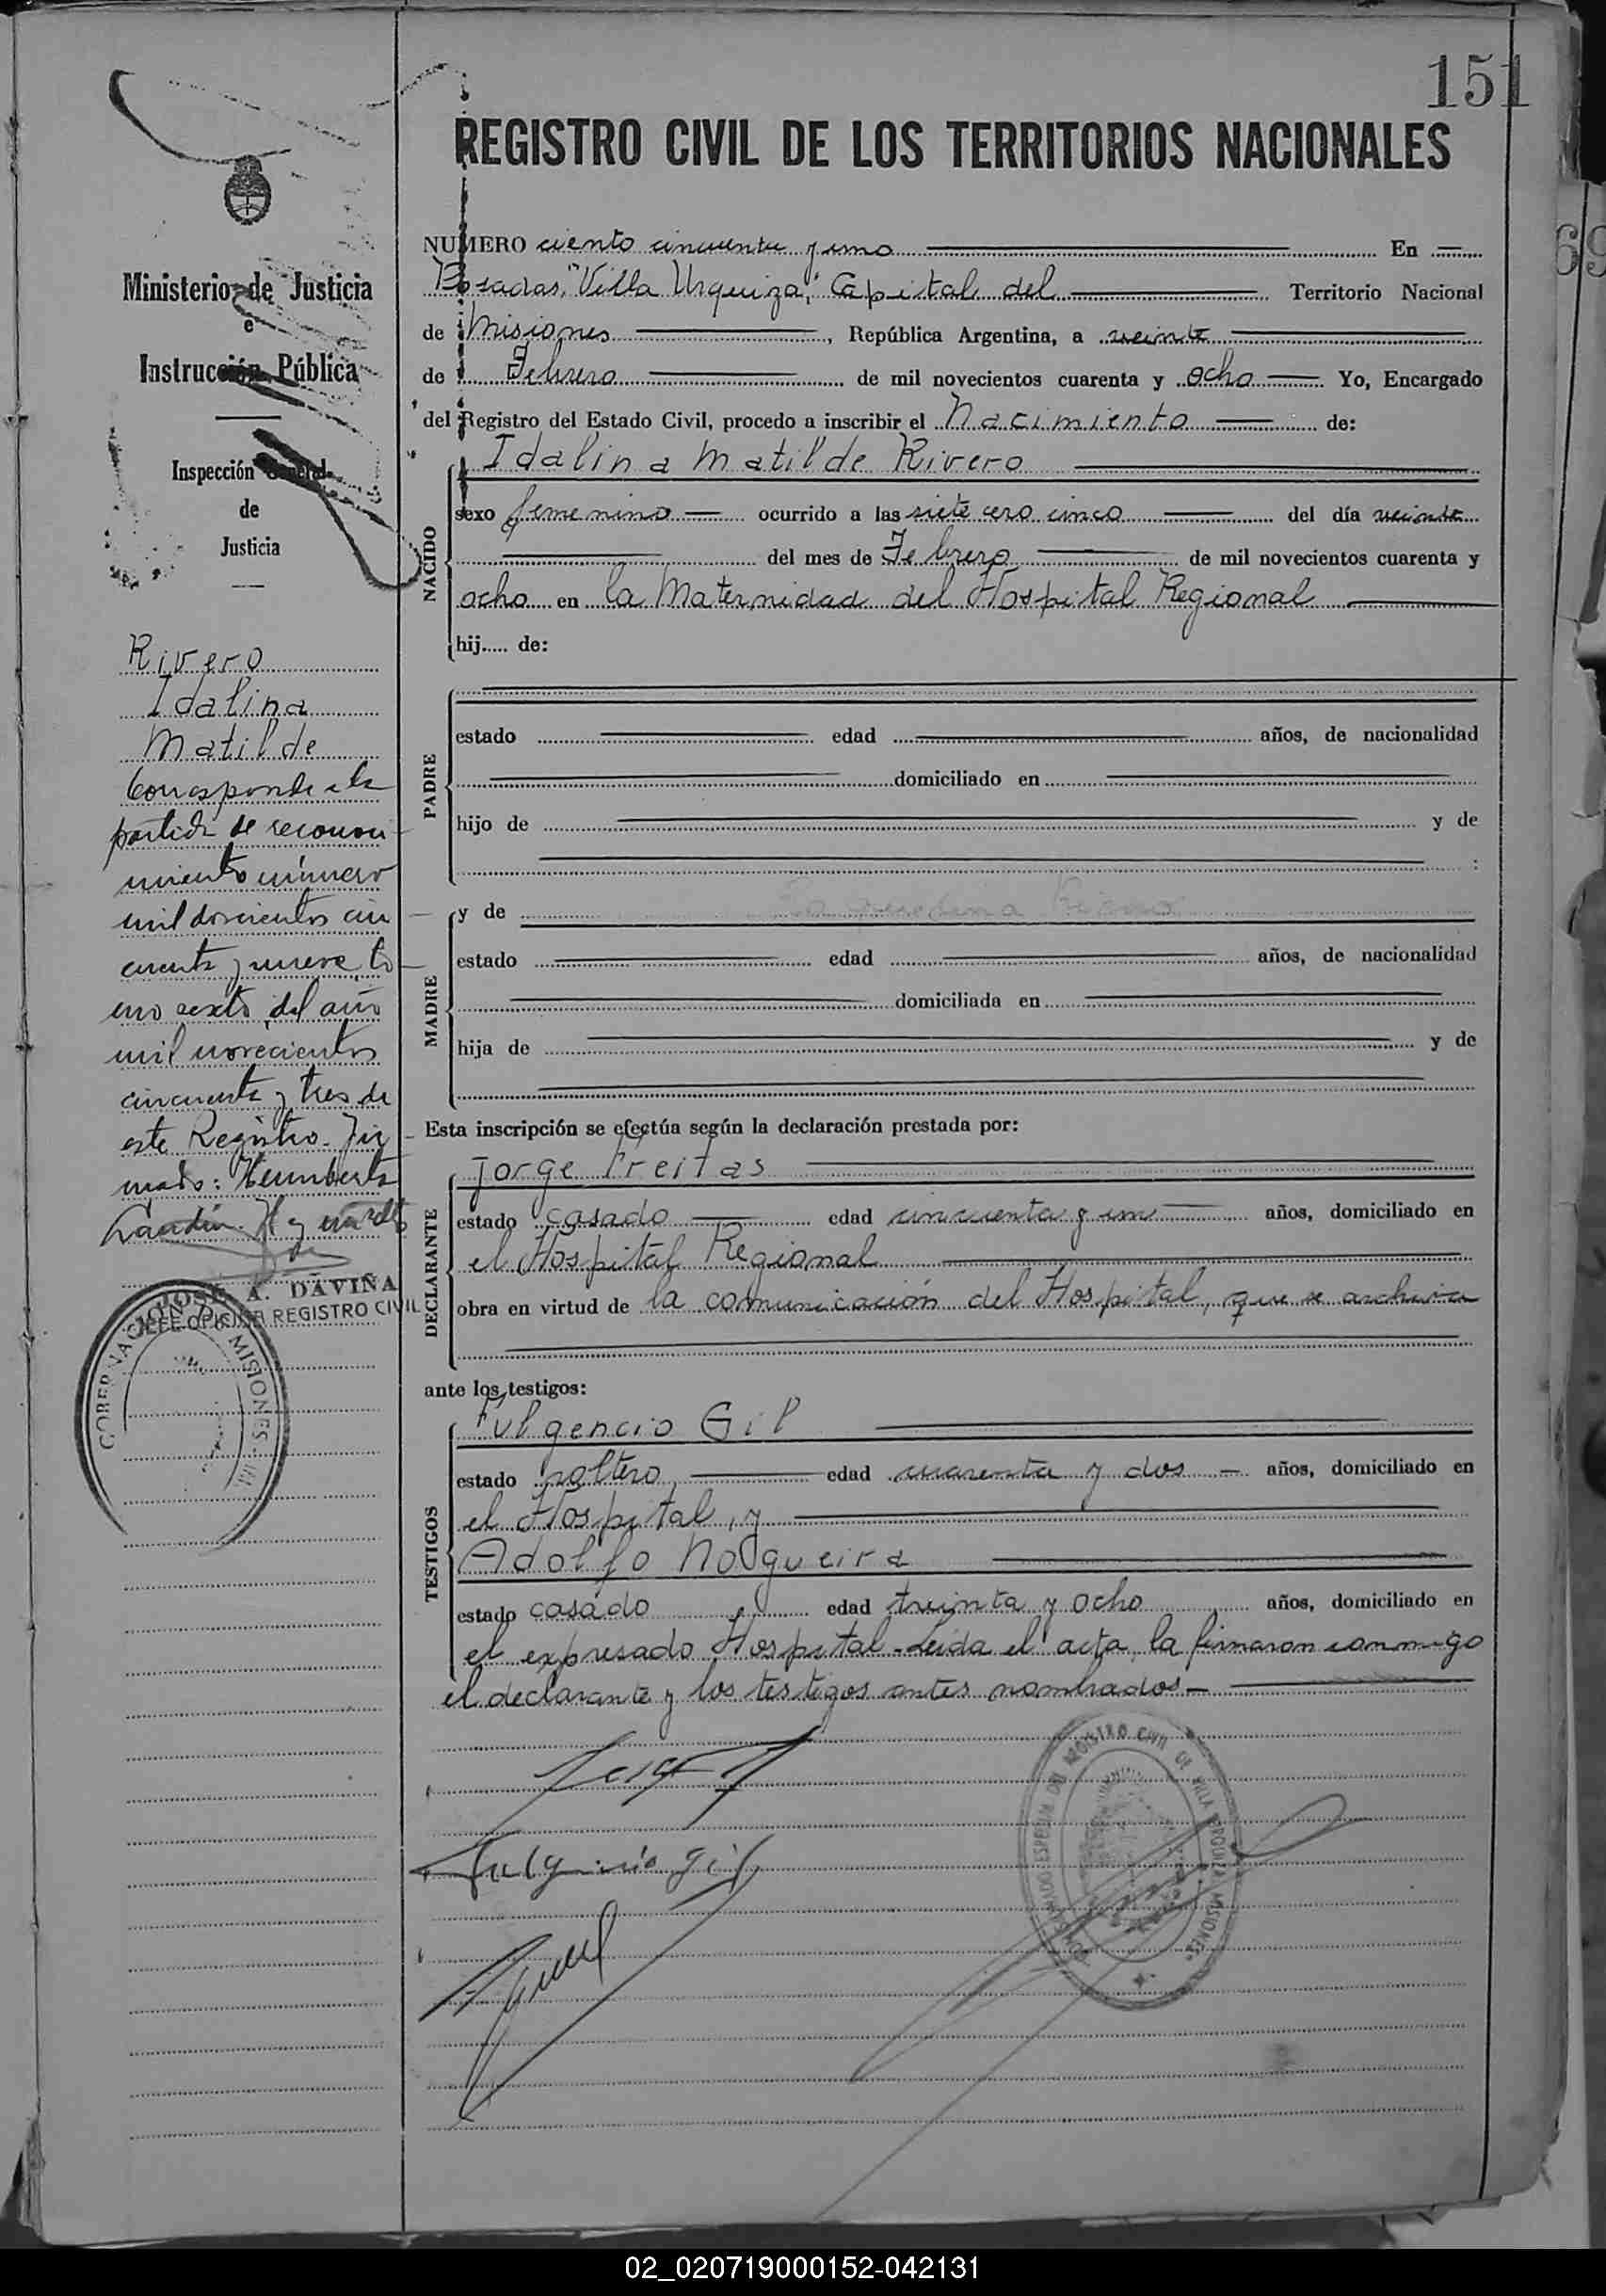 151
REGISTRO CIVIL DE LOS TERRITORIOS NACIONALES
Ministerio de Justicia
e
Instrucción Pública
Inspección General
de
Justicia
Rivero
Idalina
Matilde
Corresponde a la
partida de reconoci-
miento número
mil doscientos cin-
cuenta y nueve, to-
mo sexto, del año
mil novecientos
cincuenta y tres de
este Registro. Fir-
mado: Humberto
JOSE A. DAVIÑA
JEFE OFICINA REGISTRO CIVIL
GOBERNACION DE MISIONES
NUMERO ciento cincuenta y uno En
Posadas, "Villa Urquiza," Capital del Territorio Nacional
de Misiones, República Argentina, a veinte
de Febrero de mil novecientos cuarenta y ocho Yo, Encargado
del Registro del Estado Civil, procedo a inscribir el Nacimiento de:
Idalina Matilde Rivero
NACIDO
sexo femenino ocurrido a las siete cero cinco del día veinte
del mes de Febrero de mil novecientos cuarenta y
ocho en la Maternidad del Hospital Regional
hij..... de:
PADRE
estado edad años, de nacionalidad
domiciliado en
hijo de y de
MADRE
y de
estado edad años, de nacionalidad
domiciliada en
hija de y de
Esta inscripción se efectúa según la declaración prestada por:
DECLARANTE
Jorge Freitas
estado casado edad cincuenta y un años, domiciliado en
el Hospital Regional
obra en virtud de la comunicación del Hospital, que se archiva
ante los testigos:
TESTIGOS
Fulgencio Gil
estado soltero edad cuarenta y dos años, domiciliado en
el Hospital, y
Adolfo Nogueira
estado casado edad treinta y ocho años, domiciliado en
el expresado Hospital - Leída el acta, la firmaron conmigo
el declarante y los testigos antes nombrados -
REGISTRO CIVIL DE VILLA URQUIZA MISIONES
Fulgencio Gil
69
02_020719000152-042131